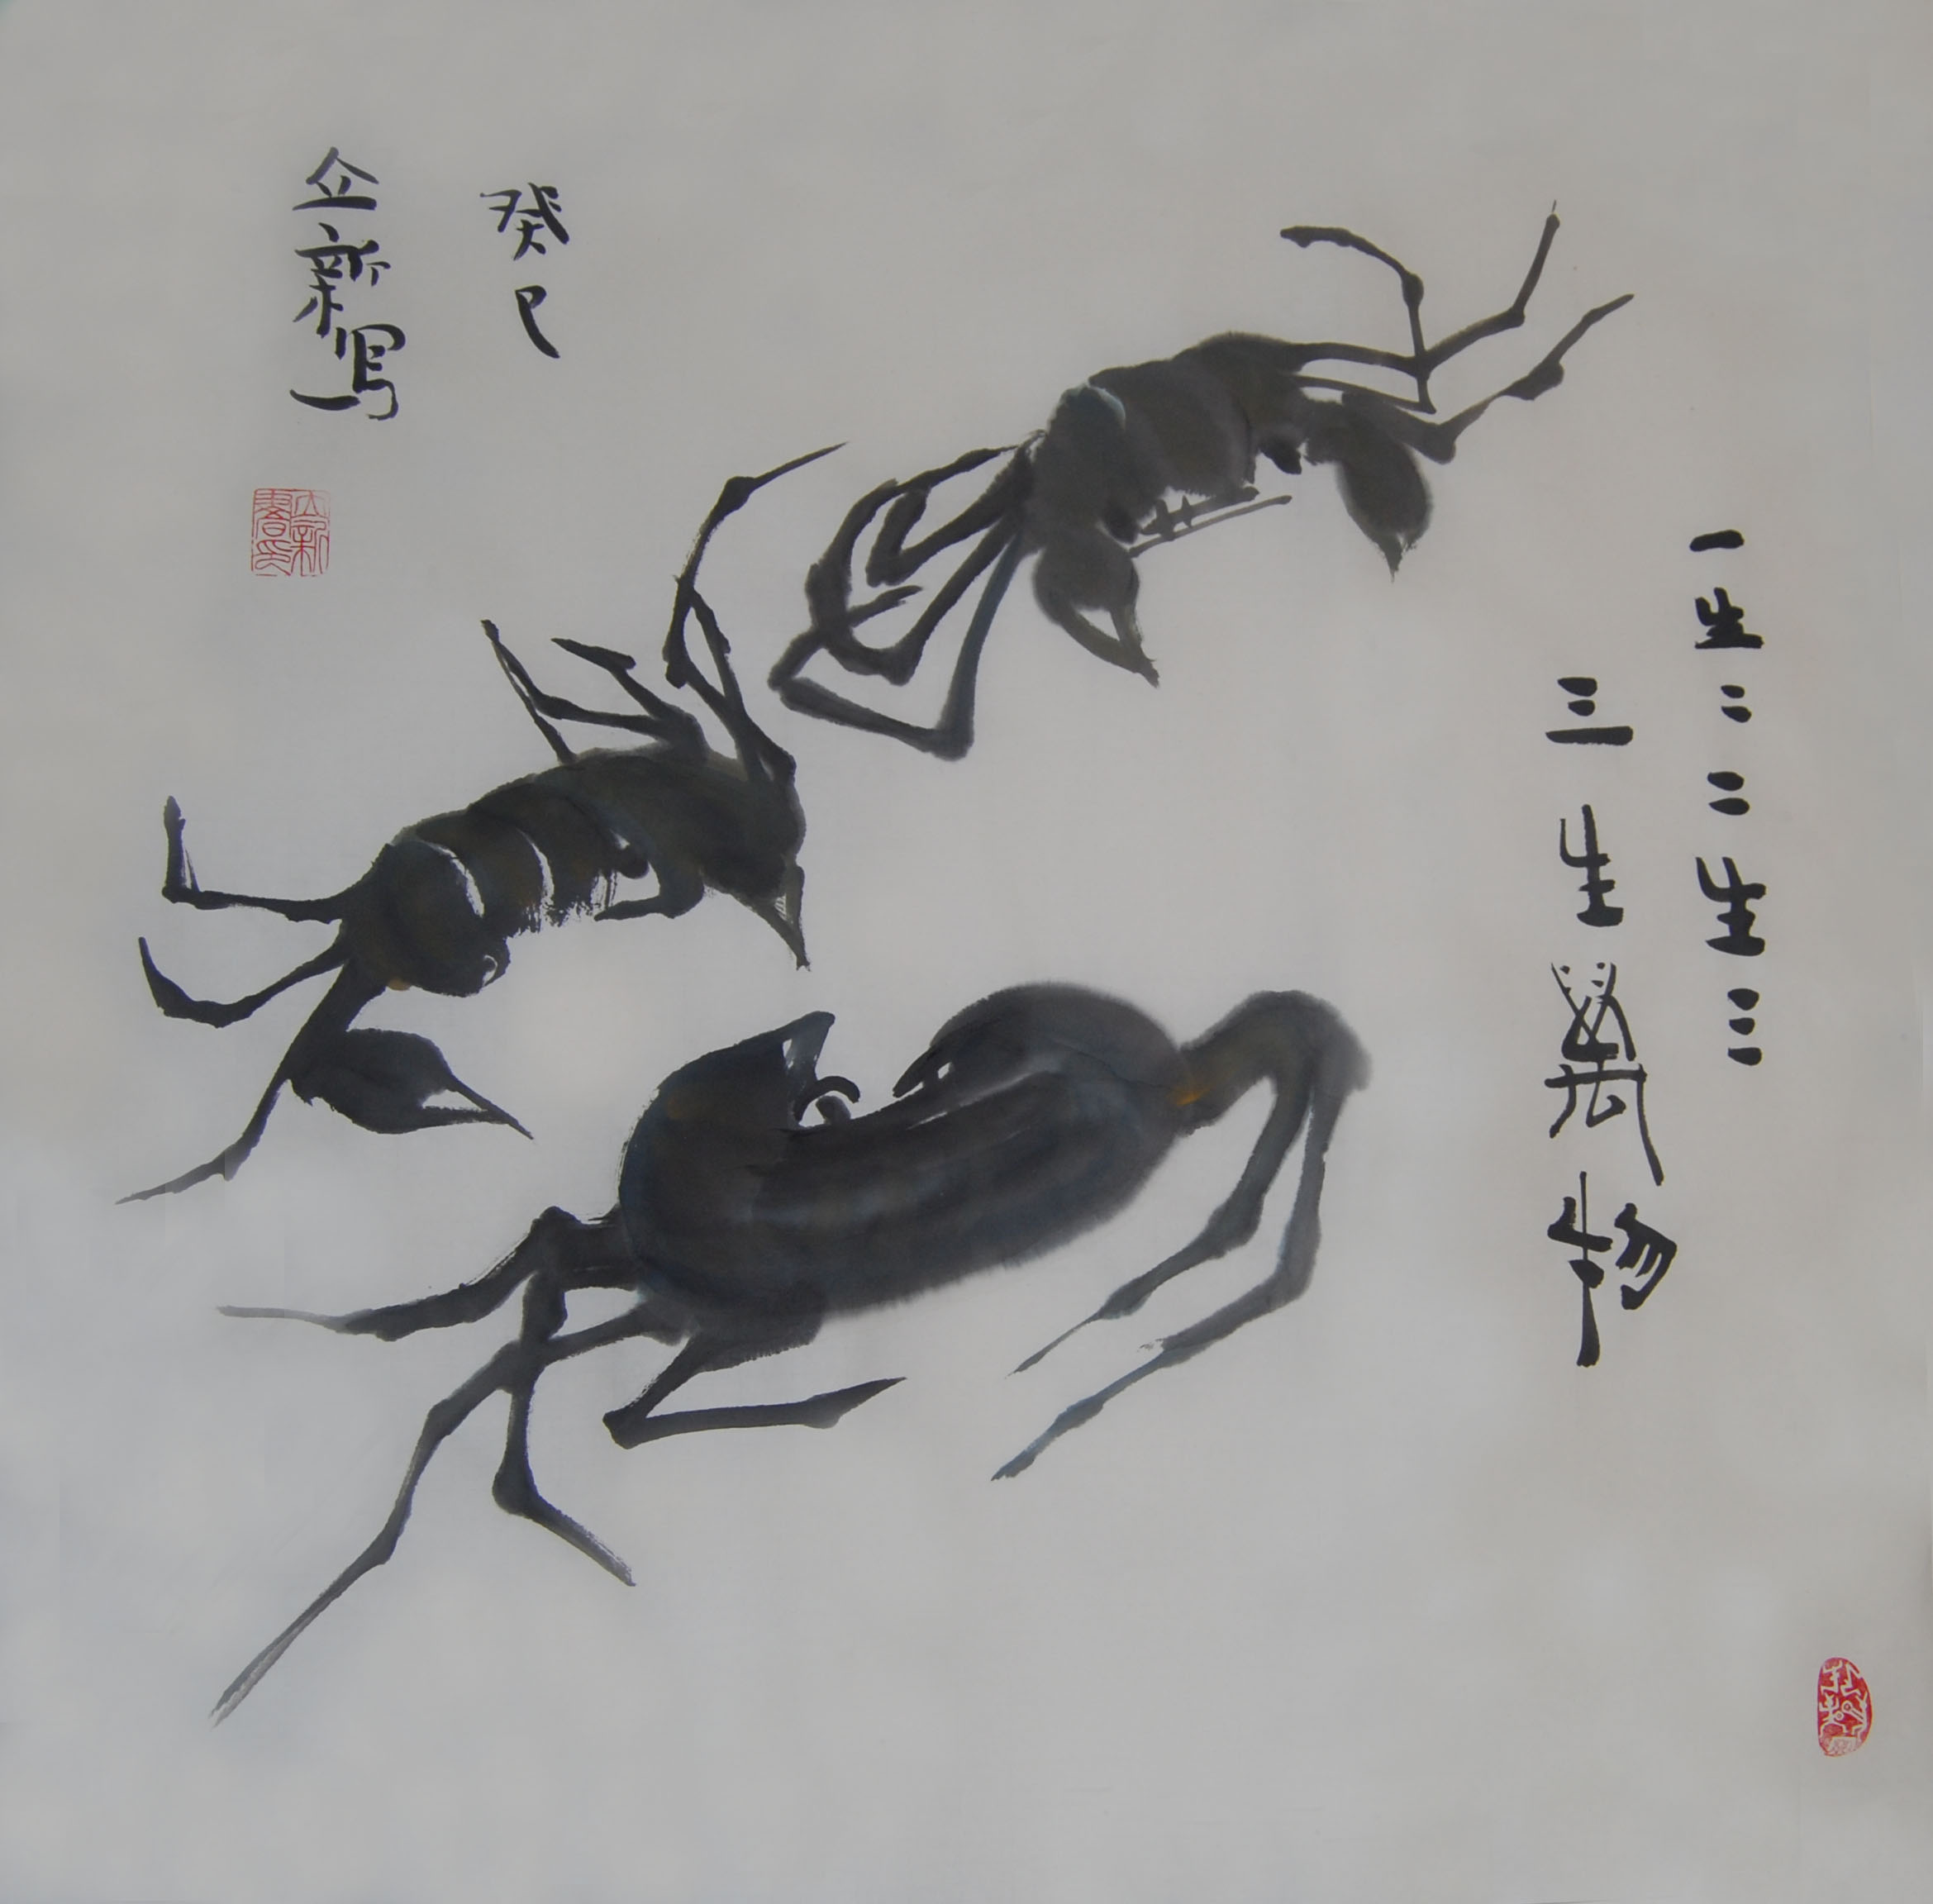 一生二二生三
三生萬物
癸巳
企新写